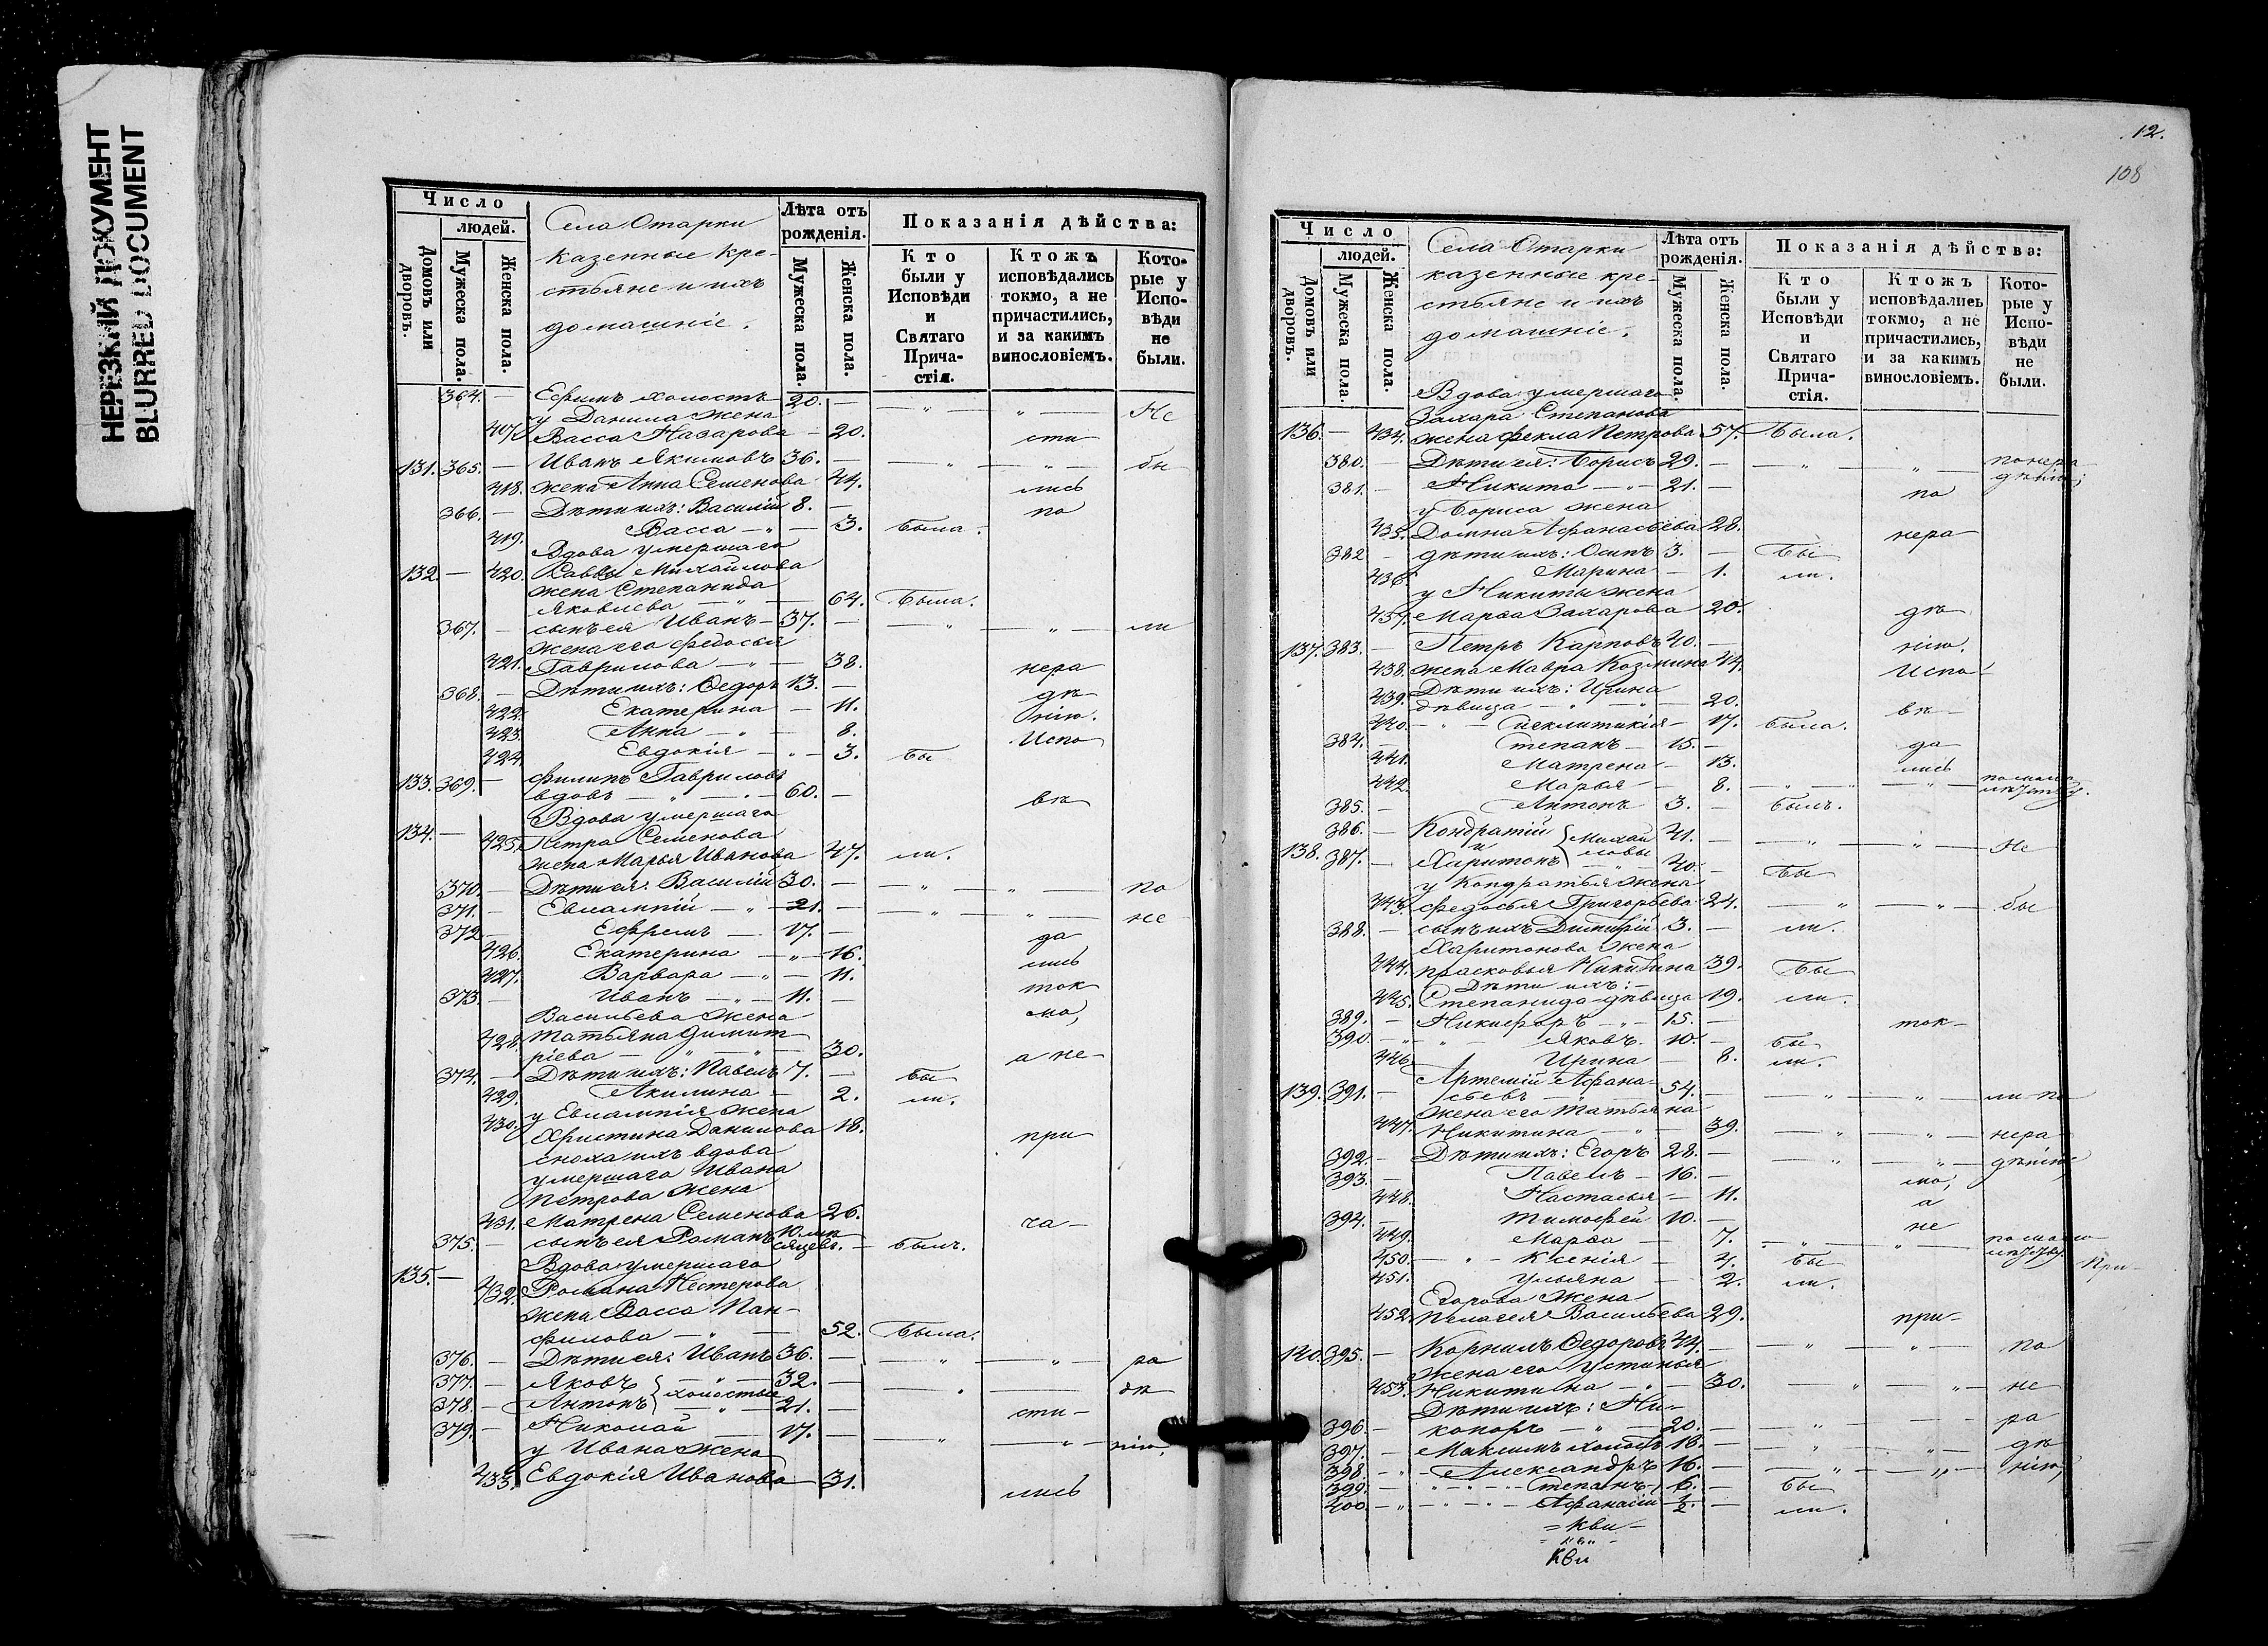 НЕРЕЗКИЙ ДОКУМЕНТ
BLURRED DOCUMENT
Число
людей.
Домовъ или дворовъ.
Мужеска пола.
Женска пола.
Села Отарки
казенные кре-
стьяне и ихъ
домашніе.
Лѣта отъ рожденія.
Мужеска пола.
Женска пола.
Показанія дѣйства:
Кто были у Исповѣди и Святаго Прича-стія.
Ктожъ исповѣдались токмо, а не причастились, и за какимъ винословіемъ.
Кото-рые у Испо-вѣди не были.
364. — Ефимъ холостъ 20. — — " " — Не
у Данила жена
407. Васса Назарова — 20. сти
131. 365. — Иванъ Якимовъ 36. — — " — " — бы
418. жена Анна Семенова 44. лись
366. — Дѣти ихъ: Василій 8. — по
419. Васса — " — 3. была.
Вдова умершаго
132. — 420. Саввы Михайлова
жена Степанида
Яковлева — " — 64. была.
367. — сынъ ея Иванъ — 37. — — " — " — ли
жена его Федосья
421. Гаврилова — " — 38. нера
368. — Дѣти ихъ: Ѳедоръ 13. — дѣ-
422. Екатерина — 11. нію.
423. Анна — " — 8. Испо
424. Евдокія — " — 3. бы
133. 369. — Филипъ Гавриловъ
вдовъ — " — 60. — вѣ
Вдова умершаго
134. — 425. Петра Семенова
жена Марья Иванова 47. ли.
370. — Дѣти ея: Василій 30. — — " — " — по
371. — Евлампій — " — 21. — — " — " — не
372. — Ефремъ — 17. — да
426. Екатерина — " — 16. лись
427. Варвара — " — 11. ток
373. — Иванъ — " — 11. — мо,
Васильева жена
428. Татьяна Димит
ріева — " — " — 30. а не-
374. — Дѣти ихъ: Павелъ 7. — бы
429. Акилина — 2. ли.
у Евлампія жена
430. Христина Данилова 18. при
сноха ихъ вдова
умершаго Ивана
Петрова жена
431. Матрена Семенова 26. ча-
375. — сынъ ея Романъ 10. мѣ
сяцевъ. — былъ.
Вдова умершаго
135. — 432. Романа Нестерова
жена Васса Пан-
филова — " — 52. была.
376. — Дѣти ея: Иванъ 36. — — " — " — ра
377. — Яковъ — " — 32. — — " — дѣ
холостые
378. — Антонъ — " — 21. — сти-
379. — Николай — 17. — — " — " — нію,
у Ивана жена
433. Евдокія Иванова — 31. лись
12.
108
Число
людей.
Домовъ или дворовъ.
Мужеска пола.
Женска пола.
Села Отарки
казенные кре-
стьяне и ихъ
домашніе.
Лѣта отъ рожденія.
Мужеска пола.
Женска пола.
Показанія дѣйства:
Кто были у Исповѣди и Святаго Прича-стія.
Ктожъ исповѣдались токмо, а не причастились, и за какимъ винословіемъ.
Кото-рые у Испо-вѣди не были.
Вдова умершаго
Захара Степанова
136. — 434. жена Фекла Петрова 57. Была.
380. — Дѣти ея: Борисъ 29. — — " — " — по нера
дѣнію,
381. — Никита — " — 21. — по
у Бориса жена
435. Домна Афанасьева 28. нера
382 — дѣти ихъ: Осипъ 3. — бы
436. Марина — 1. ли.
у Никиты жена
437. Марѳа Захарова 20. дѣ
137. 383. — Петръ Карповъ 40. — нію.
438. жена Мавра Козмина 44. Испо-
439. Дѣти ихъ: Ирина
дѣвица — " — " — 20. вѣ-
440. — " — 17. была.
384. — Степанъ — 15. — да
441. Матрена — 13. лись
442. Марья — 8. — " — " — " — по мало
385. — Антонъ — 3. — былъ.
386. — Кондратій 41. — — " — " — Не
и Михай
ловы
138. 387. — Харитонъ — 40. — бы
у Кондратья жена
443. Федосья Григорьева 24. — " — " — бы
388. — сынъ ихъ Димитрій 3. — ли.
Харитонова жена
444. Прасковья Никитина 39. бы
Дѣти ихъ: —
445. Степанида дѣвица 19. ли.
389. — Никифоръ — " — 15. — ток-
390. — " — " — Яковъ. 10. — бы
446. Ирина — 8. ли.
Артемій Афана-
139. 391. — сьевъ — " — 54. — — " — " — ли по
жена его Татьяна
447. Никитина — " — 39. — " — " — нера
392. — Дѣти ихъ: Егоръ 28. — — " — " — дѣнію,
393. — Павелъ — 16. — мо,
448. Настасья — 11. а
394. — Тимоѳей 10. — не
449. Марѳа — 7. — " — " — по мало-
450. — " — Ксенія — 4. бы При-
451. Ульяна — 2. ли.
Егорова жена
452. Пелагея Васильева 29. при-
140. 395. — Корнилъ Ѳедоровъ 44. — — " — " — по
жена его Устинья
453. Никитина — " — 30. — " — " — не
Дѣти ихъ: Ни-
396. — коноръ — " — 20. — — " — ра
397. — Максимъ холостъ 18. — — " — " — дѣ
398. — " — Александръ 16. — — " — " — нію,
399. — " — Степанъ — 6. — бы
400. — " — Афанасій ½. — ли.
= Кви —
Кви